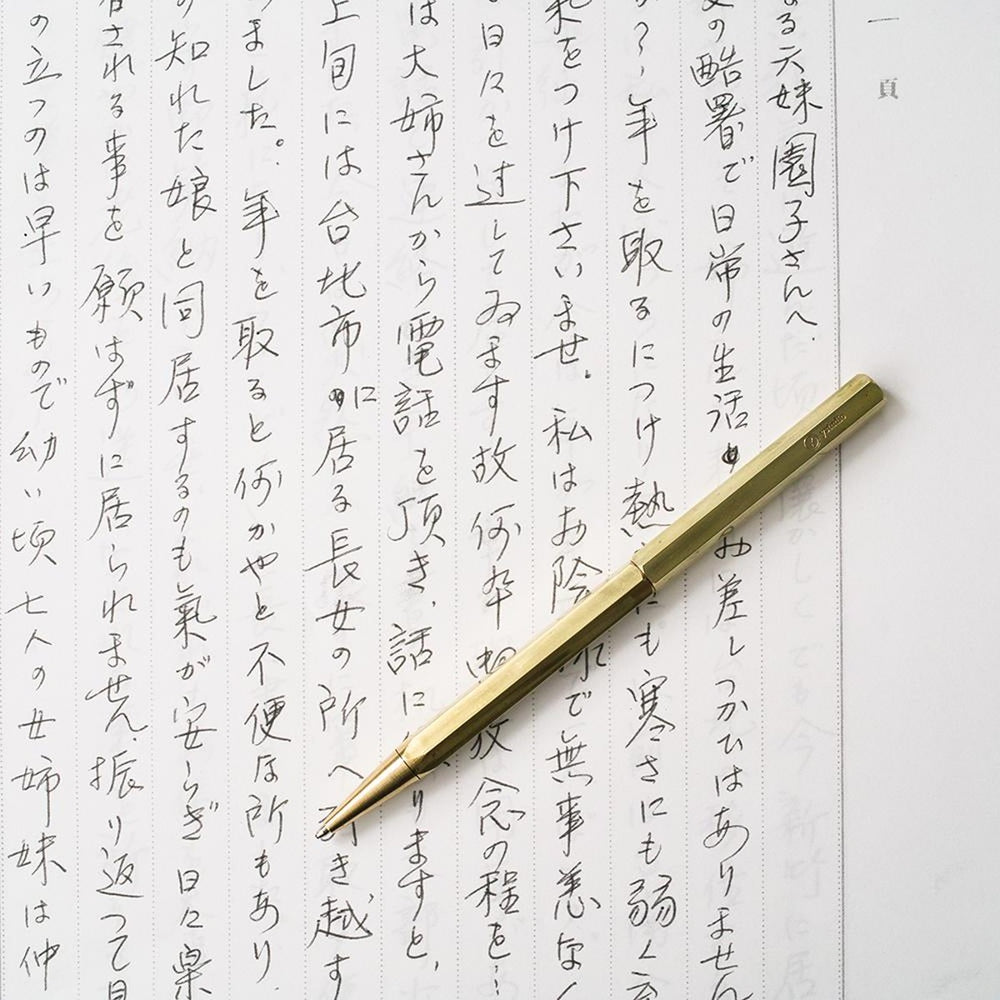 一頁
る六妹園子さんへ.
の酷署で日常の生活も 差しつかひはありません
か?, 年を取るにつけ熱 にも寒さにも弱く
気をつけ下さいませ. 私はお陰 で無事恙なく
日々を過してゐます故何卒 放念の程を…
は大姉さんから電話を頂き, 話に りますと,
上旬には台北市に居る長女の所へ引き越す
ました。年を取ると何かやと不便な所もあり.
の知れた娘と同居するのも氣が安らぎ 日々
される事を願はずに居られません. 振り返って見
の立つのは早いもので幼い頃 七人の女姉妹は仲